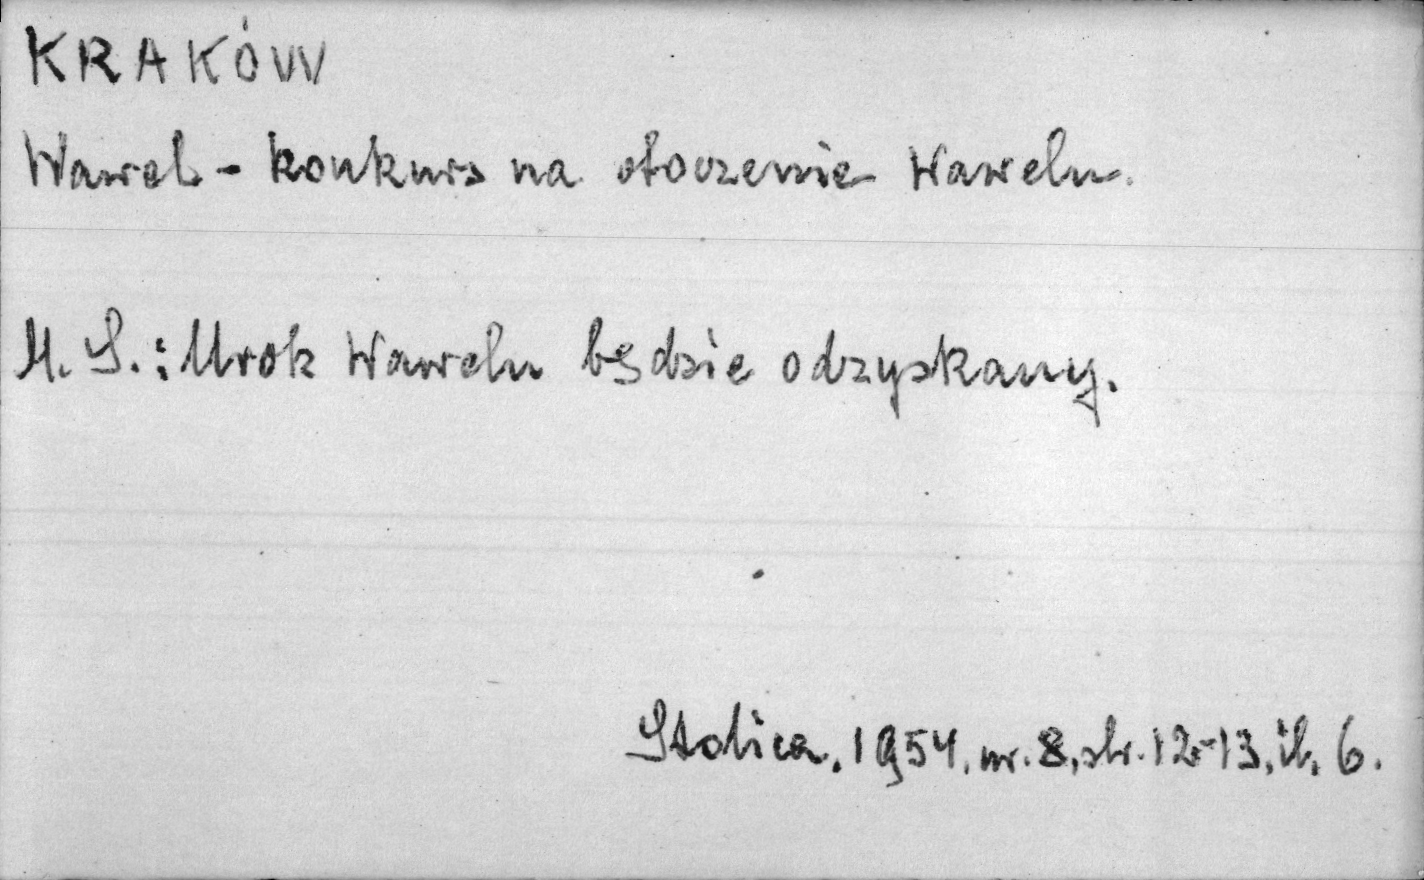 KRAKÓW
Wawel - konkurs na otoczenie Wawelu.
M. S.: Urok Wawelu będzie odzyskany.
Stolica, 1954, nr. 8, str. 12-13, il. 6.